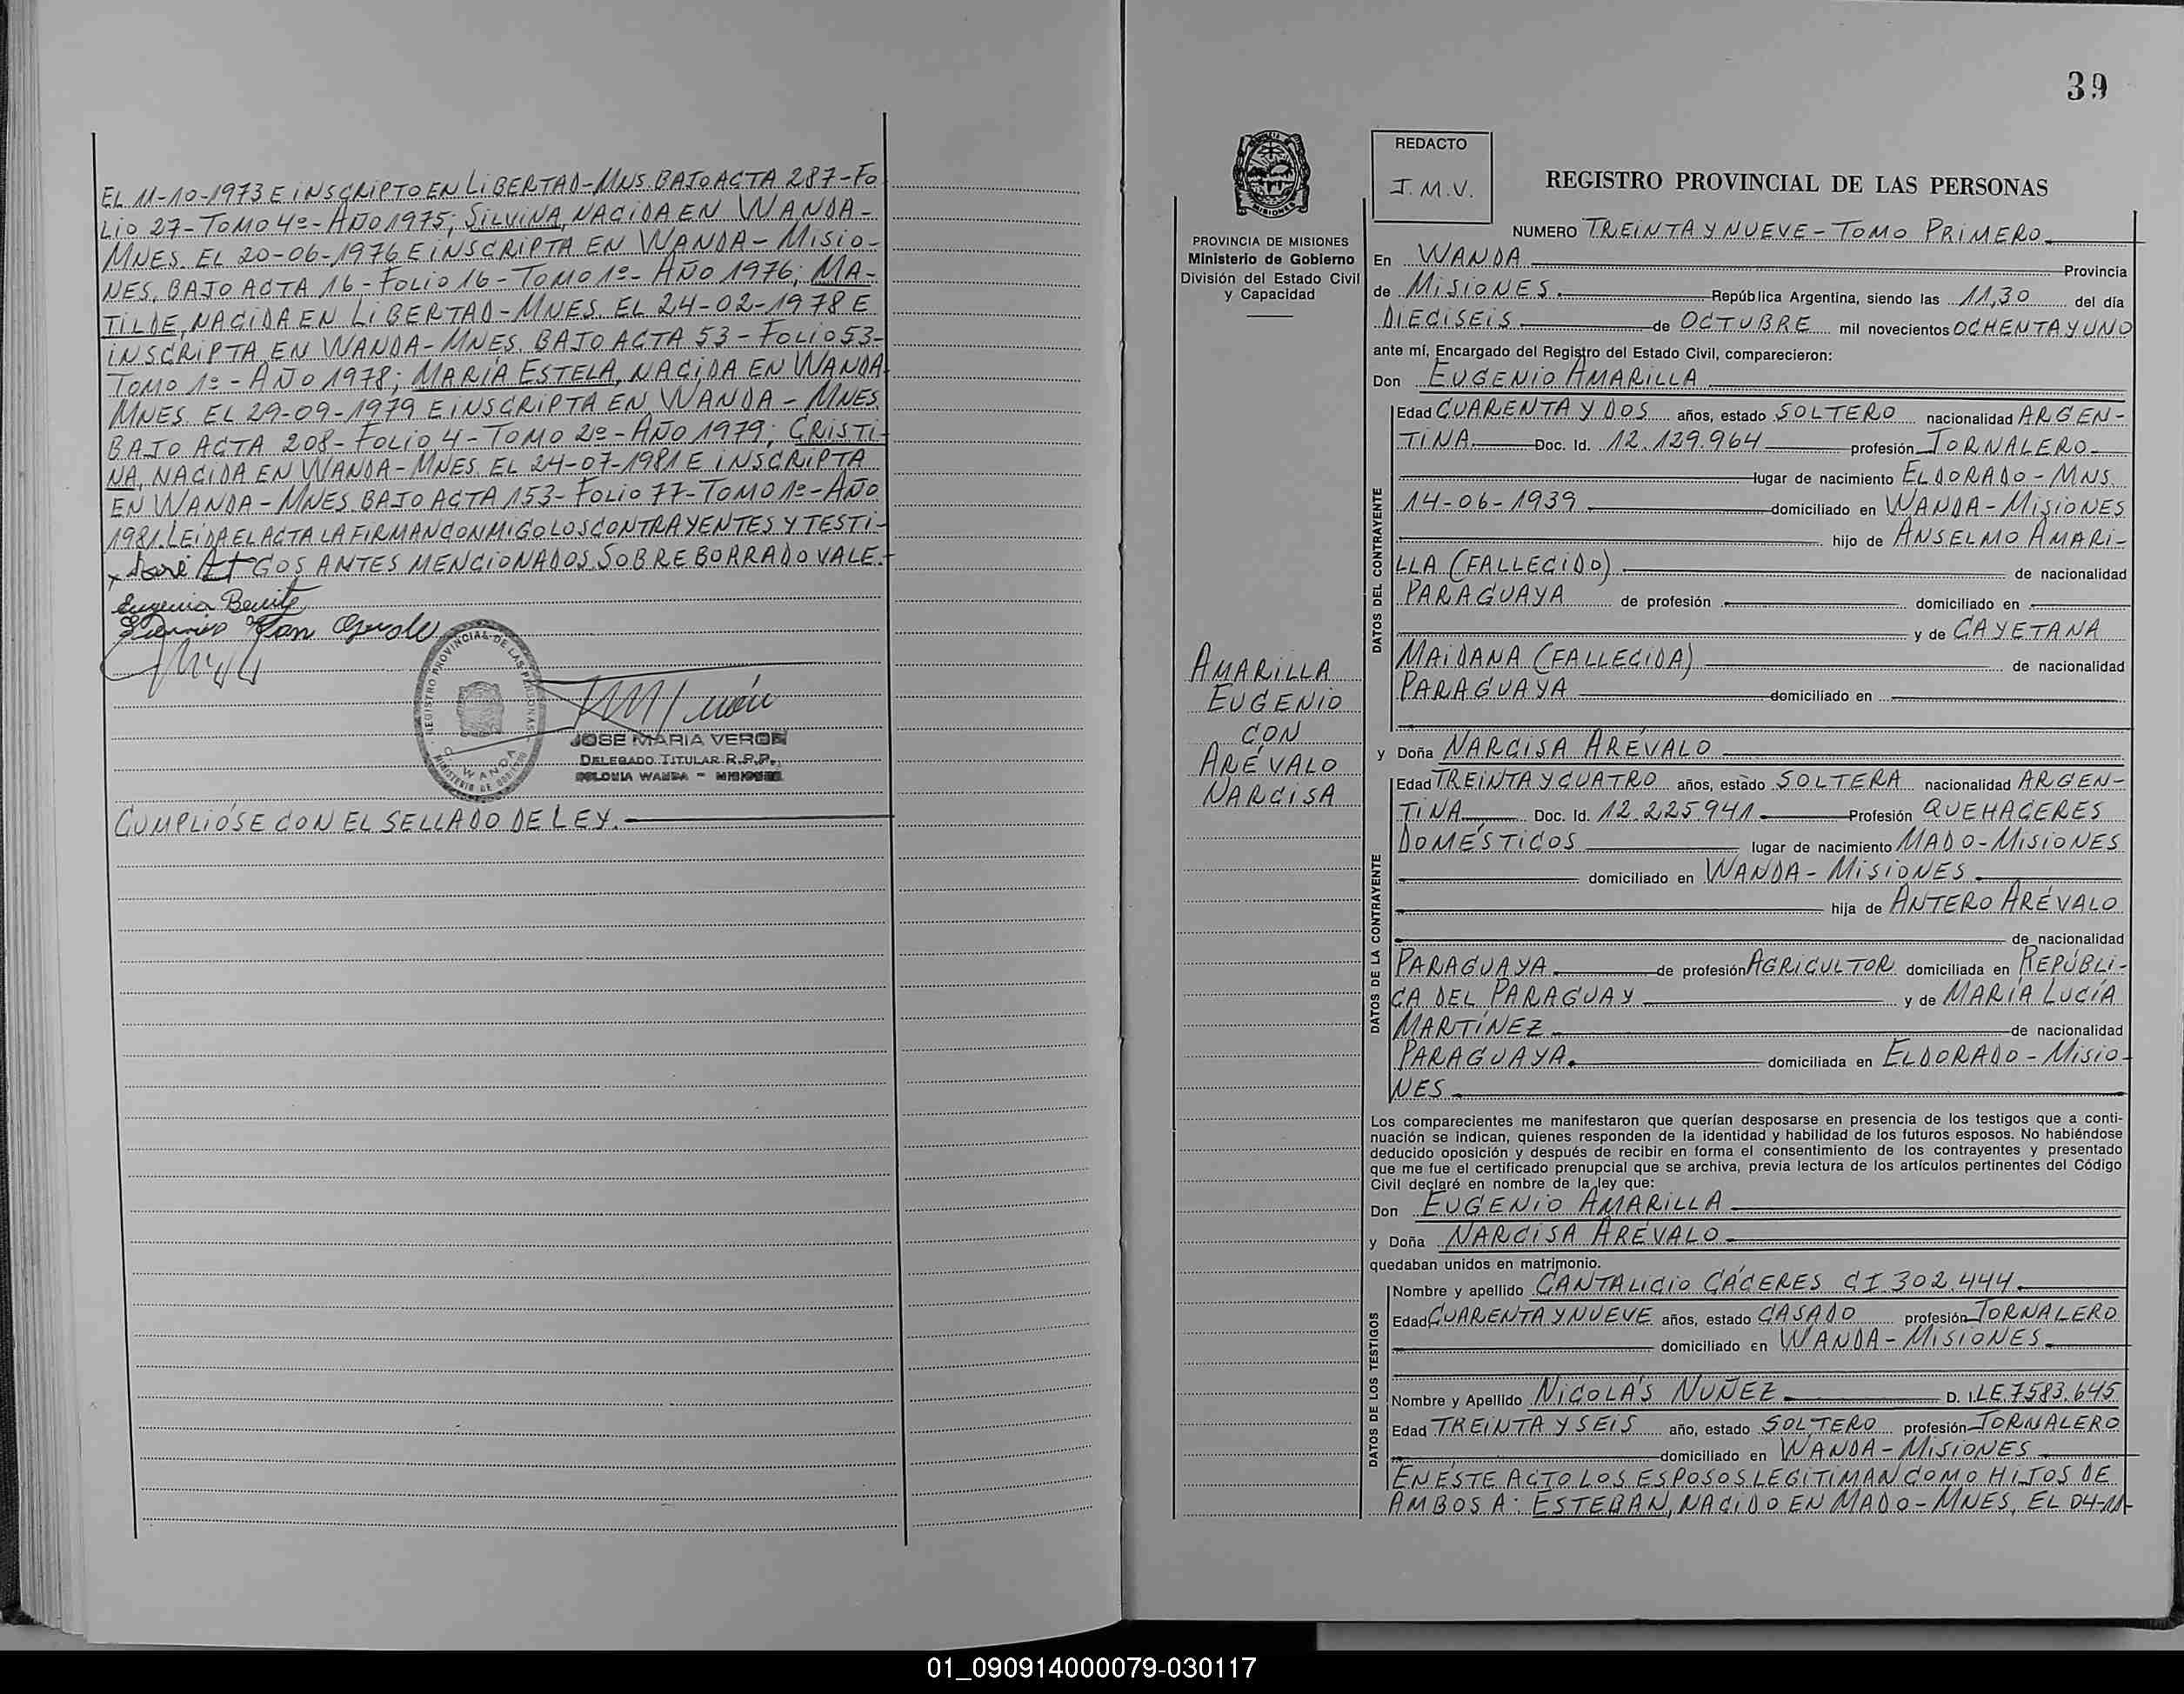 EL 11-10-1973 E iNSCRiPTO EN LiBERTAD-MNS. BAJO ACTA 287-FO
LIO 27-TOMO 4º-AÑO 1975; SiLViNA, NACiDA EN WANDA-
MNES. EL 20-06-1976 E iNSCRiPTA EN WANDA-MiSiO-
NES, BAJO ACTA 16-FOLiO 16-TOMO 1º-AÑO 1976; MA-
TiLDE, NACiDA EN LiBERTAD-MNES. EL 24-02-1978 E
iNSCRiPTA EN WANDA-MNES. BAJO ACTA 53-FOLiO 53-
TOMO 1º-AÑO 1978; MARÍA ESTELA, NACiDA EN WANDA
MNES. EL 29-09-1979 E iNSCRiPTA EN WANDA-MNES
BAJO ACTA 208-FOLiO 4-TOMO 2º-AÑO 1979; CRiSTi-
NA, NACiDA EN WANDA-MNES. EL 24-07-1981 E iNSCRiPTA
EN WANDA-MNES. BAJO ACTA 153-FOLiO 77-TOMO 1º-AÑO
1981. LEiDA EL ACTA LA FiRMAN CONMiGO LOS CONTRAYENTES Y TESTi-
GOS ANTES MENCiONADOS. SOBRE BORRADO VALE.-
REGISTRO PROVINCIAL DE LAS PERSONAS
WANDA
MINISTERIO DE GOBIERNO
JOSE MARIA VERON
DELEGADO TITULAR R.P.P.
COLONIA WANDA - MISIONES
CUMPLiÓSE CON EL SELLADO DE LEY.
39
REDACTO
J.M.V.
REGISTRO PROVINCIAL DE LAS PERSONAS
PROVINCIA DE MISIONES
Ministerio de Gobierno
División del Estado Civil
y Capacidad
AMARiLLA
EUGENiO
CON
ARÉVALO
NARCiSA
NUMERO TREiNTA Y NUEVE-TOMO PRiMERO
En WANDA Provincia
de MiSiONES. República Argentina, siendo las 11,30 del día
DiECiSEiS de OCTUBRE mil novecientos OCHENTA Y UNO
ante mí, Encargado del Registro del Estado Civil, comparecieron:
Don EUGENiO AMARiLLA
DATOS DEL CONTRAYENTE
Edad CUARENTA Y DOS años, estado SOLTERO nacionalidad ARGEN-
TiNA. Doc. Id. 12.129.964 profesión JORNALERO
lugar de nacimiento ELDORADO-MNS.
14-06-1939 domiciliado en WANDA-MiSiONES
hijo de ANSELMO AMARi-
LLA (FALLECiDO) de nacionalidad
PARAGUAYA de profesión domiciliado en
y de CAYETANA
MAiDANA (FALLECiDA) de nacionalidad
PARAGUAYA domiciliado en
y Doña NARCiSA ARÉVALO
DATOS DE LA CONTRAYENTE
Edad TREiNTA Y CUATRO años, estado SOLTERA nacionalidad ARGEN-
TiNA Doc. Id. 12.225.941. Profesión QUEHACERES
DOMÉSTiCOS lugar de nacimiento MADO-MiSiONES
domiciliado en WANDA-MiSiONES.
hija de ANTERO ARÉVALO
de nacionalidad
PARAGUAYA. de profesión AGRiCULTOR domiciliada en REPÚBLi-
CA DEL PARAGUAY y de MARÍA LUCÍA
MARTÍNEZ de nacionalidad
PARAGUAYA. domiciliada en ELDORADO-MiSiO-
NES
Los comparecientes me manifestaron que querían desposarse en presencia de los testigos que a conti-
nuación se indican, quienes responden de la identidad y habilidad de los futuros esposos. No habiéndose
deducido oposición y después de recibir en forma el consentimiento de los contrayentes y presentado
que me fue el certificado prenupcial que se archiva, previa lectura de los artículos pertinentes del Código
Civil declaré en nombre de la ley que:
Don EUGENiO AMARiLLA
y Doña NARCiSA ARÉVALO
quedaban unidos en matrimonio.
DATOS DE LOS TESTIGOS
Nombre y apellido CANTALiCiO CÁCERES CI 302.444.
Edad CUARENTA Y NUEVE años, estado CASADO profesión JORNALERO
domiciliado en WANDA-MiSiONES
Nombre y Apellido NiCOLÁS NUÑEZ D. I. LE.7583.645
Edad TREiNTA Y SEiS año, estado SOLTERO profesión JORNALERO
domiciliado en WANDA-MiSiONES
EN ÉSTE ACTO LOS ESPOSOS LEGiTiMAN COMO HiJOS DE
AMBOS A: ESTEBAN, NACiDO EN MADO-MNES, EL 04-11-
01_090914000079-030117